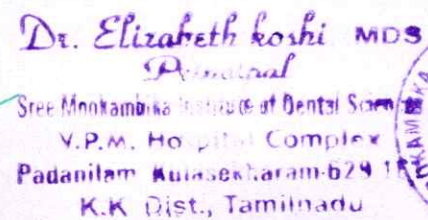 Dr. Elizabeth koshi MDS
Principal
Sree Mookambika Institute of Dental Science
V.P.M. Hospital Complex
Padanilam Kulasekharam-629 1
K.K Dist., Tamilnadu